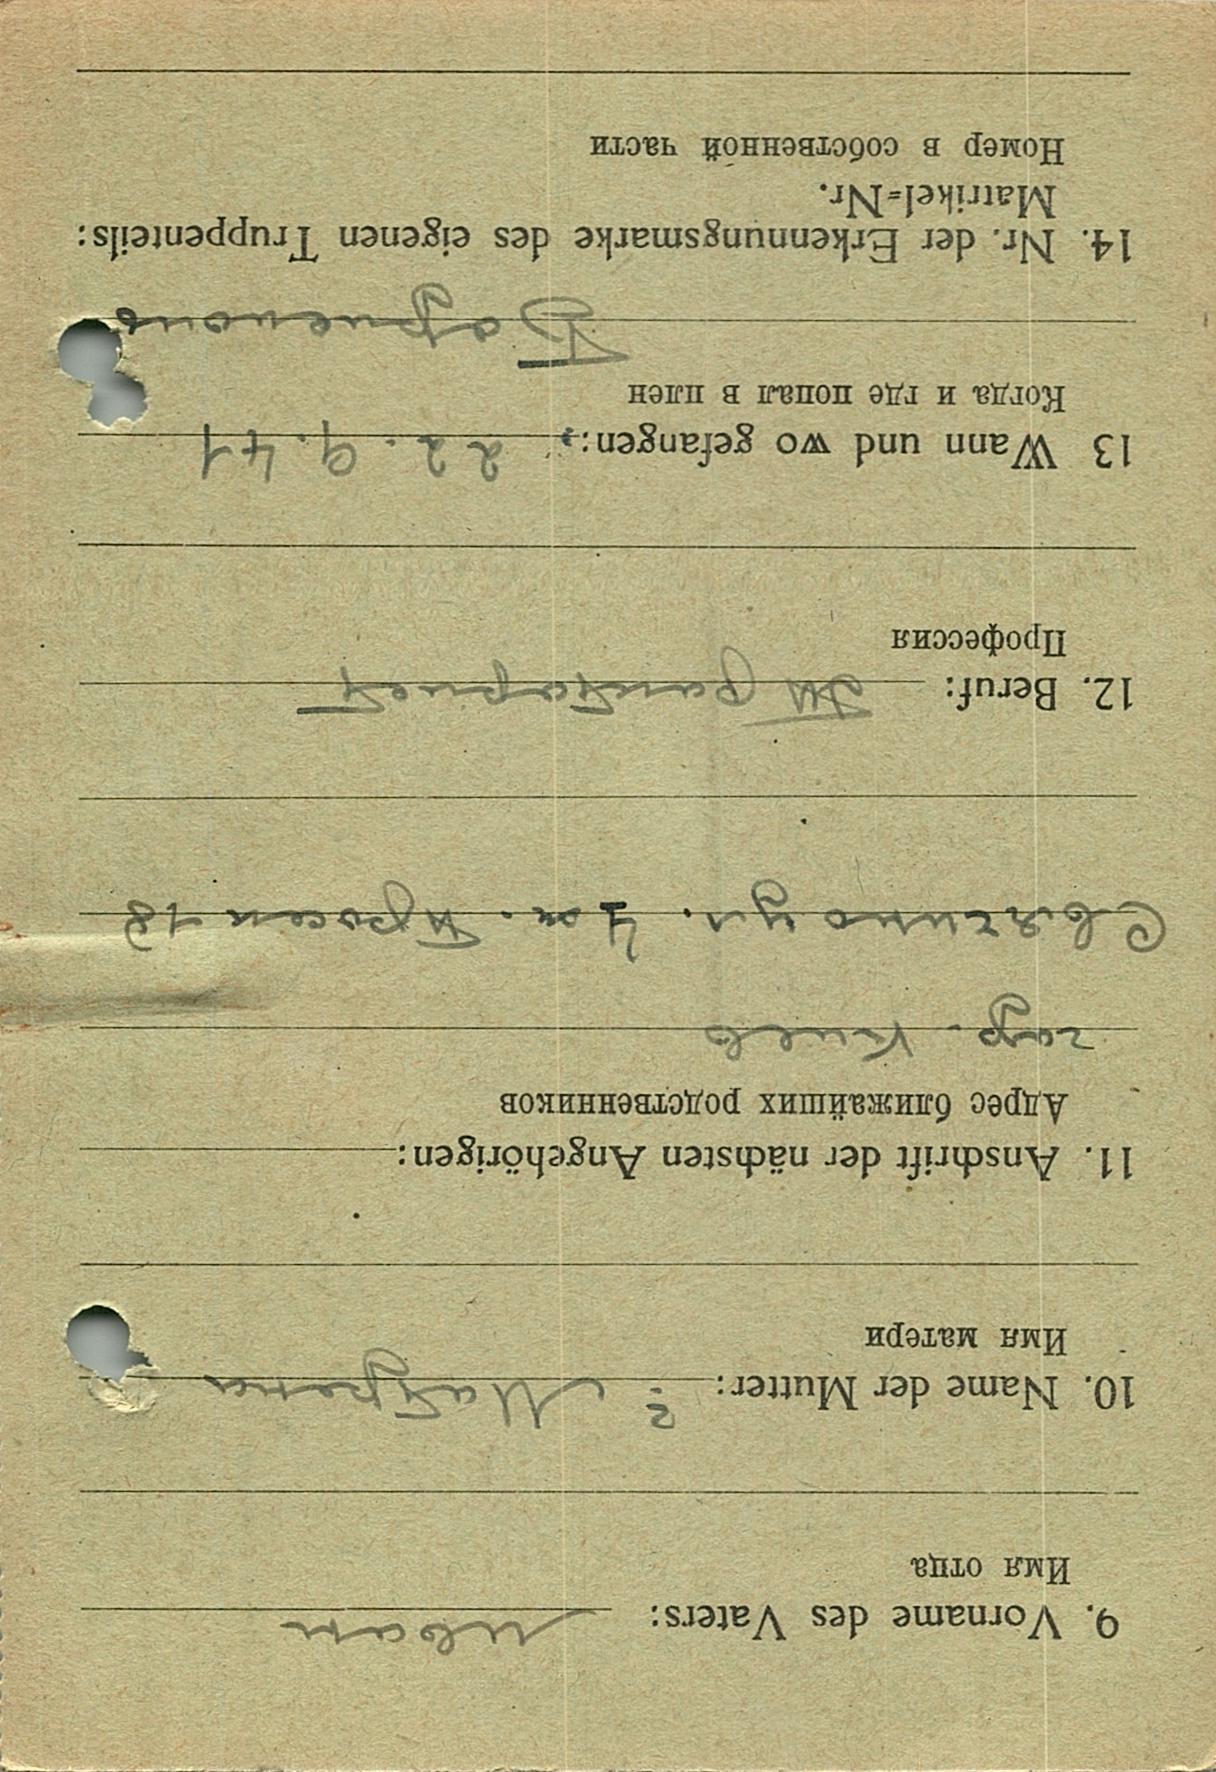 9. Vorname des Vaters: Иван
Имя отца
10. Name der Mutter: ? Матрена
Имя матери
11. Anschrift der nächsten Angehörigen:
Адрес ближайших родственников
гор. Киев
Святино ул. 4 я. Просек 18
12. Beruf:
Профессия
13 Wann und wo gefangen: 22. 9. 41
Когда и где попал в плен
14. Nr. der Erkennungsmarke des eigenen Truppenteils:
Matrikel=Nr.
Номер в собственной части